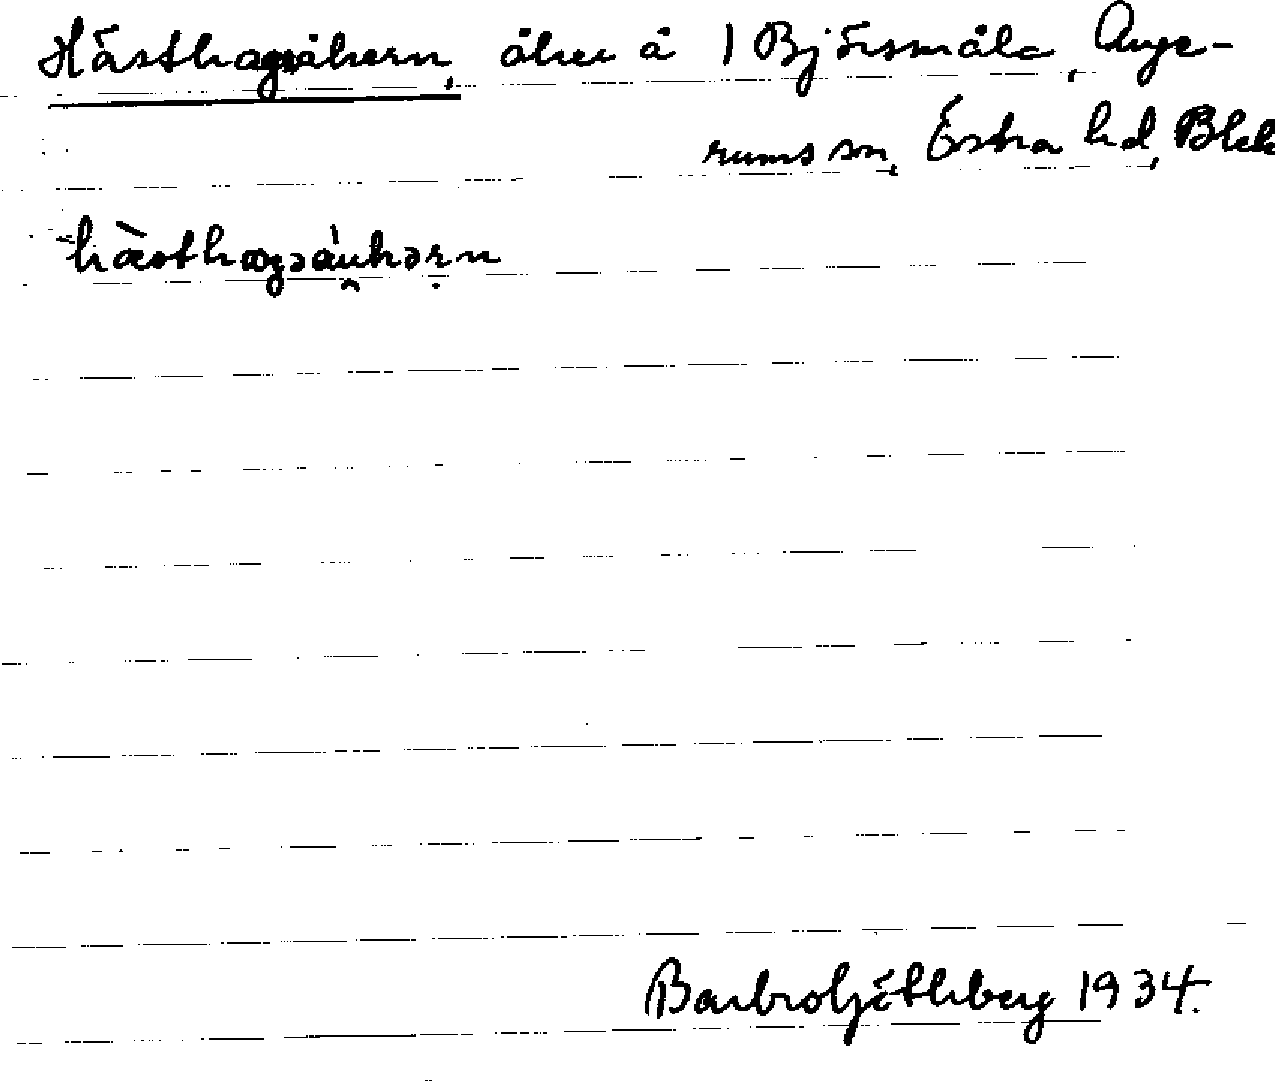 Hästhagaåkern, åker å 1 Björsmåla, Auge-
rums sn, Östra hd, Blek
hæ̀sthagəáu̯kəṛn
Barbro Götlberg 1934.